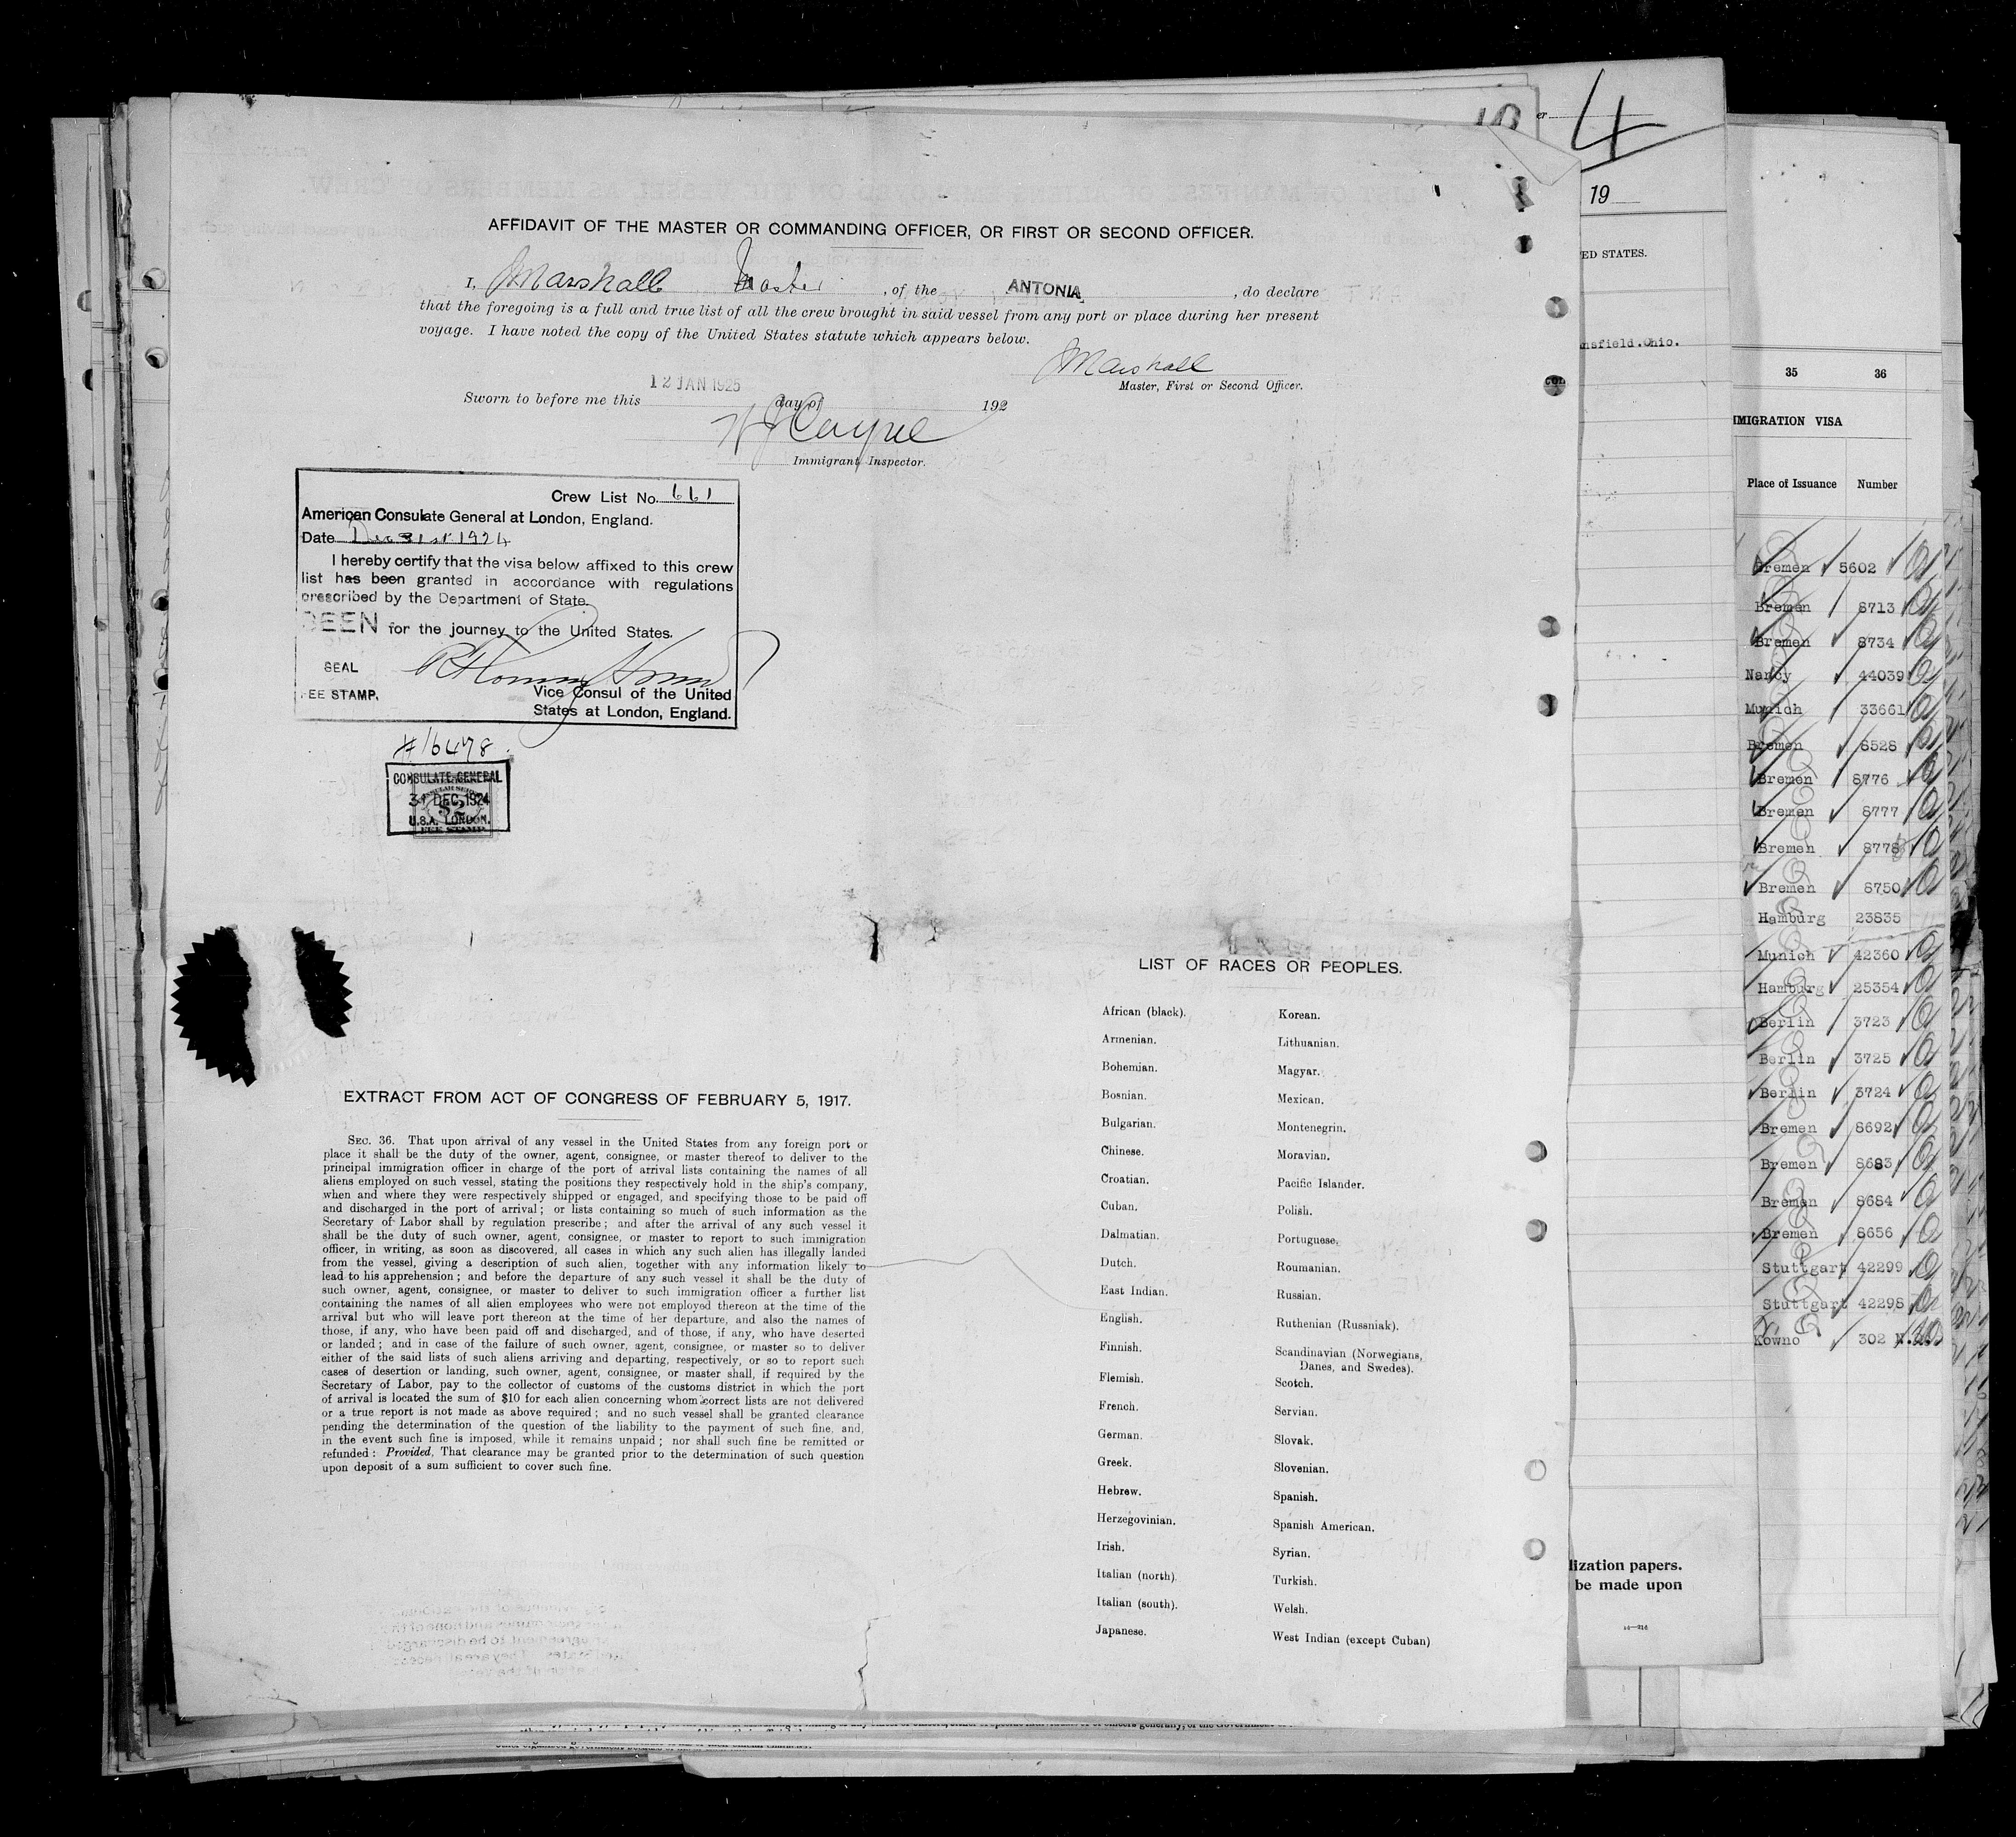 AFFIDAVIT OF THE MASTER OR COMMANDING OFFICER, OR FIRST OR SECOND OFFICER.
I, J Marshall Master, of the ANTONIA, do declare
that the foregoing is a full and true list of all the crew brought in said vessel from any port or place during her present
voyage. I have noted the copy of the United States statute which appears below.
J Marshall
Master, First or Second Officer.
12 JAN 1925
Sworn to before me this day of 192
Immigrant Inspector.
Crew List No. 661
American Consulate General at London, England.
Date Dec 31st 1924
I hereby certify that the visa below affixed to this crew
list has been granted in accordance with regulations
prescribed by the Department of State.
SEEN for the journey to the United States.
SEAL
FEE STAMP.
Vice Consul of the United
States at London, England.
#16478.
CONSULATE GENERAL
31 DEC. 1924
$2
U.S.A. LONDON.
FEE STAMP
EXTRACT FROM ACT OF CONGRESS OF FEBRUARY 5, 1917.
SEC. 36. That upon arrival of any vessel in the United States from any foreign port or
place it shall be the duty of the owner, agent, consignee, or master thereof to deliver to the
principal immigration officer in charge of the port of arrival lists containing the names of all
aliens employed on such vessel, stating the positions they respectively hold in the ship's company,
when and where they were respectively shipped or engaged, and specifying those to be paid off
and discharged in the port of arrival; or lists containing so much of such information as the
Secretary of Labor shall by regulation prescribe; and after the arrival of any such vessel it
shall be the duty of such owner, agent, consignee, or master to report to such immigration
officer, in writing, as soon as discovered, all cases in which any such alien has illegally landed
from the vessel, giving a description of such alien, together with any information likely to
lead to his apprehension; and before the departure of any such vessel it shall be the duty of
such owner, agent, consignee, or master to deliver to such immigration officer a further list
containing the names of all alien employees who were not employed thereon at the time of the
arrival but who will leave port thereon at the time of her departure, and also the names of
those, if any, who have been paid off and discharged, and of those, if any, who have deserted
or landed; and in case of the failure of such owner, agent, consignee, or master so to deliver
either of the said lists of such aliens arriving and departing, respectively, or so to report such
cases of desertion or landing, such owner, agent, consignee, or master shall, if required by the
Secretary of Labor, pay to the collector of customs of the customs district in which the port
of arrival is located the sum of $10 for each alien concerning whom correct lists are not delivered
or a true report is not made as above required; and no such vessel shall be granted clearance
pending the determination of the question of the liability to the payment of such fine, and,
in the event such fine is imposed, while it remains unpaid; nor shall such fine be remitted or
refunded: Provided, That clearance may be granted prior to the determination of such question
upon deposit of a sum sufficient to cover such fine.
LIST OF RACES OR PEOPLES.
African (black).
Armenian.
Bohemian.
Bosnian.
Bulgarian.
Chinese.
Croatian.
Cuban.
Dalmatian.
Dutch.
East Indian.
English.
Finnish.
Flemish.
French.
German.
Greek.
Hebrew.
Herzegovinian.
Irish.
Italian (north).
Italian (south).
Japanese.
Korean.
Lithuanian.
Magyar.
Mexican.
Montenegrin.
Moravian.
Pacific Islander.
Polish.
Portuguese.
Roumanian.
Russian.
Ruthenian (Russniak).
Scandinavian (Norwegians,
Danes, and Swedes).
Scotch.
Servian.
Slovak.
Slovenian.
Spanish.
Spanish American.
Syrian.
Turkish.
Welsh.
West Indian (except Cuban)
10
er
4
19
ED STATES.
nsfield.Ohio.
lization papers.
be made upon
35 36
IMMIGRATION VISA
Place of Issuance Number
Bremen 5602
Bremen 8713
Bremen 8734
Nancy 44039
Munich 33661
Bremen 8528
Bremen 8776
Bremen 8777
Bremen 8778
Bremen 8750
Hamburg 23835
Munich 42360
Hamburg 25354
Berlin 3723
Berlin 3725
Berlin 3724
Bremen 8692
Bremen 8683
Bremen 8684
Bremen 8656
Stuttgart 42299
Stuttgart 42298
Kowno 302